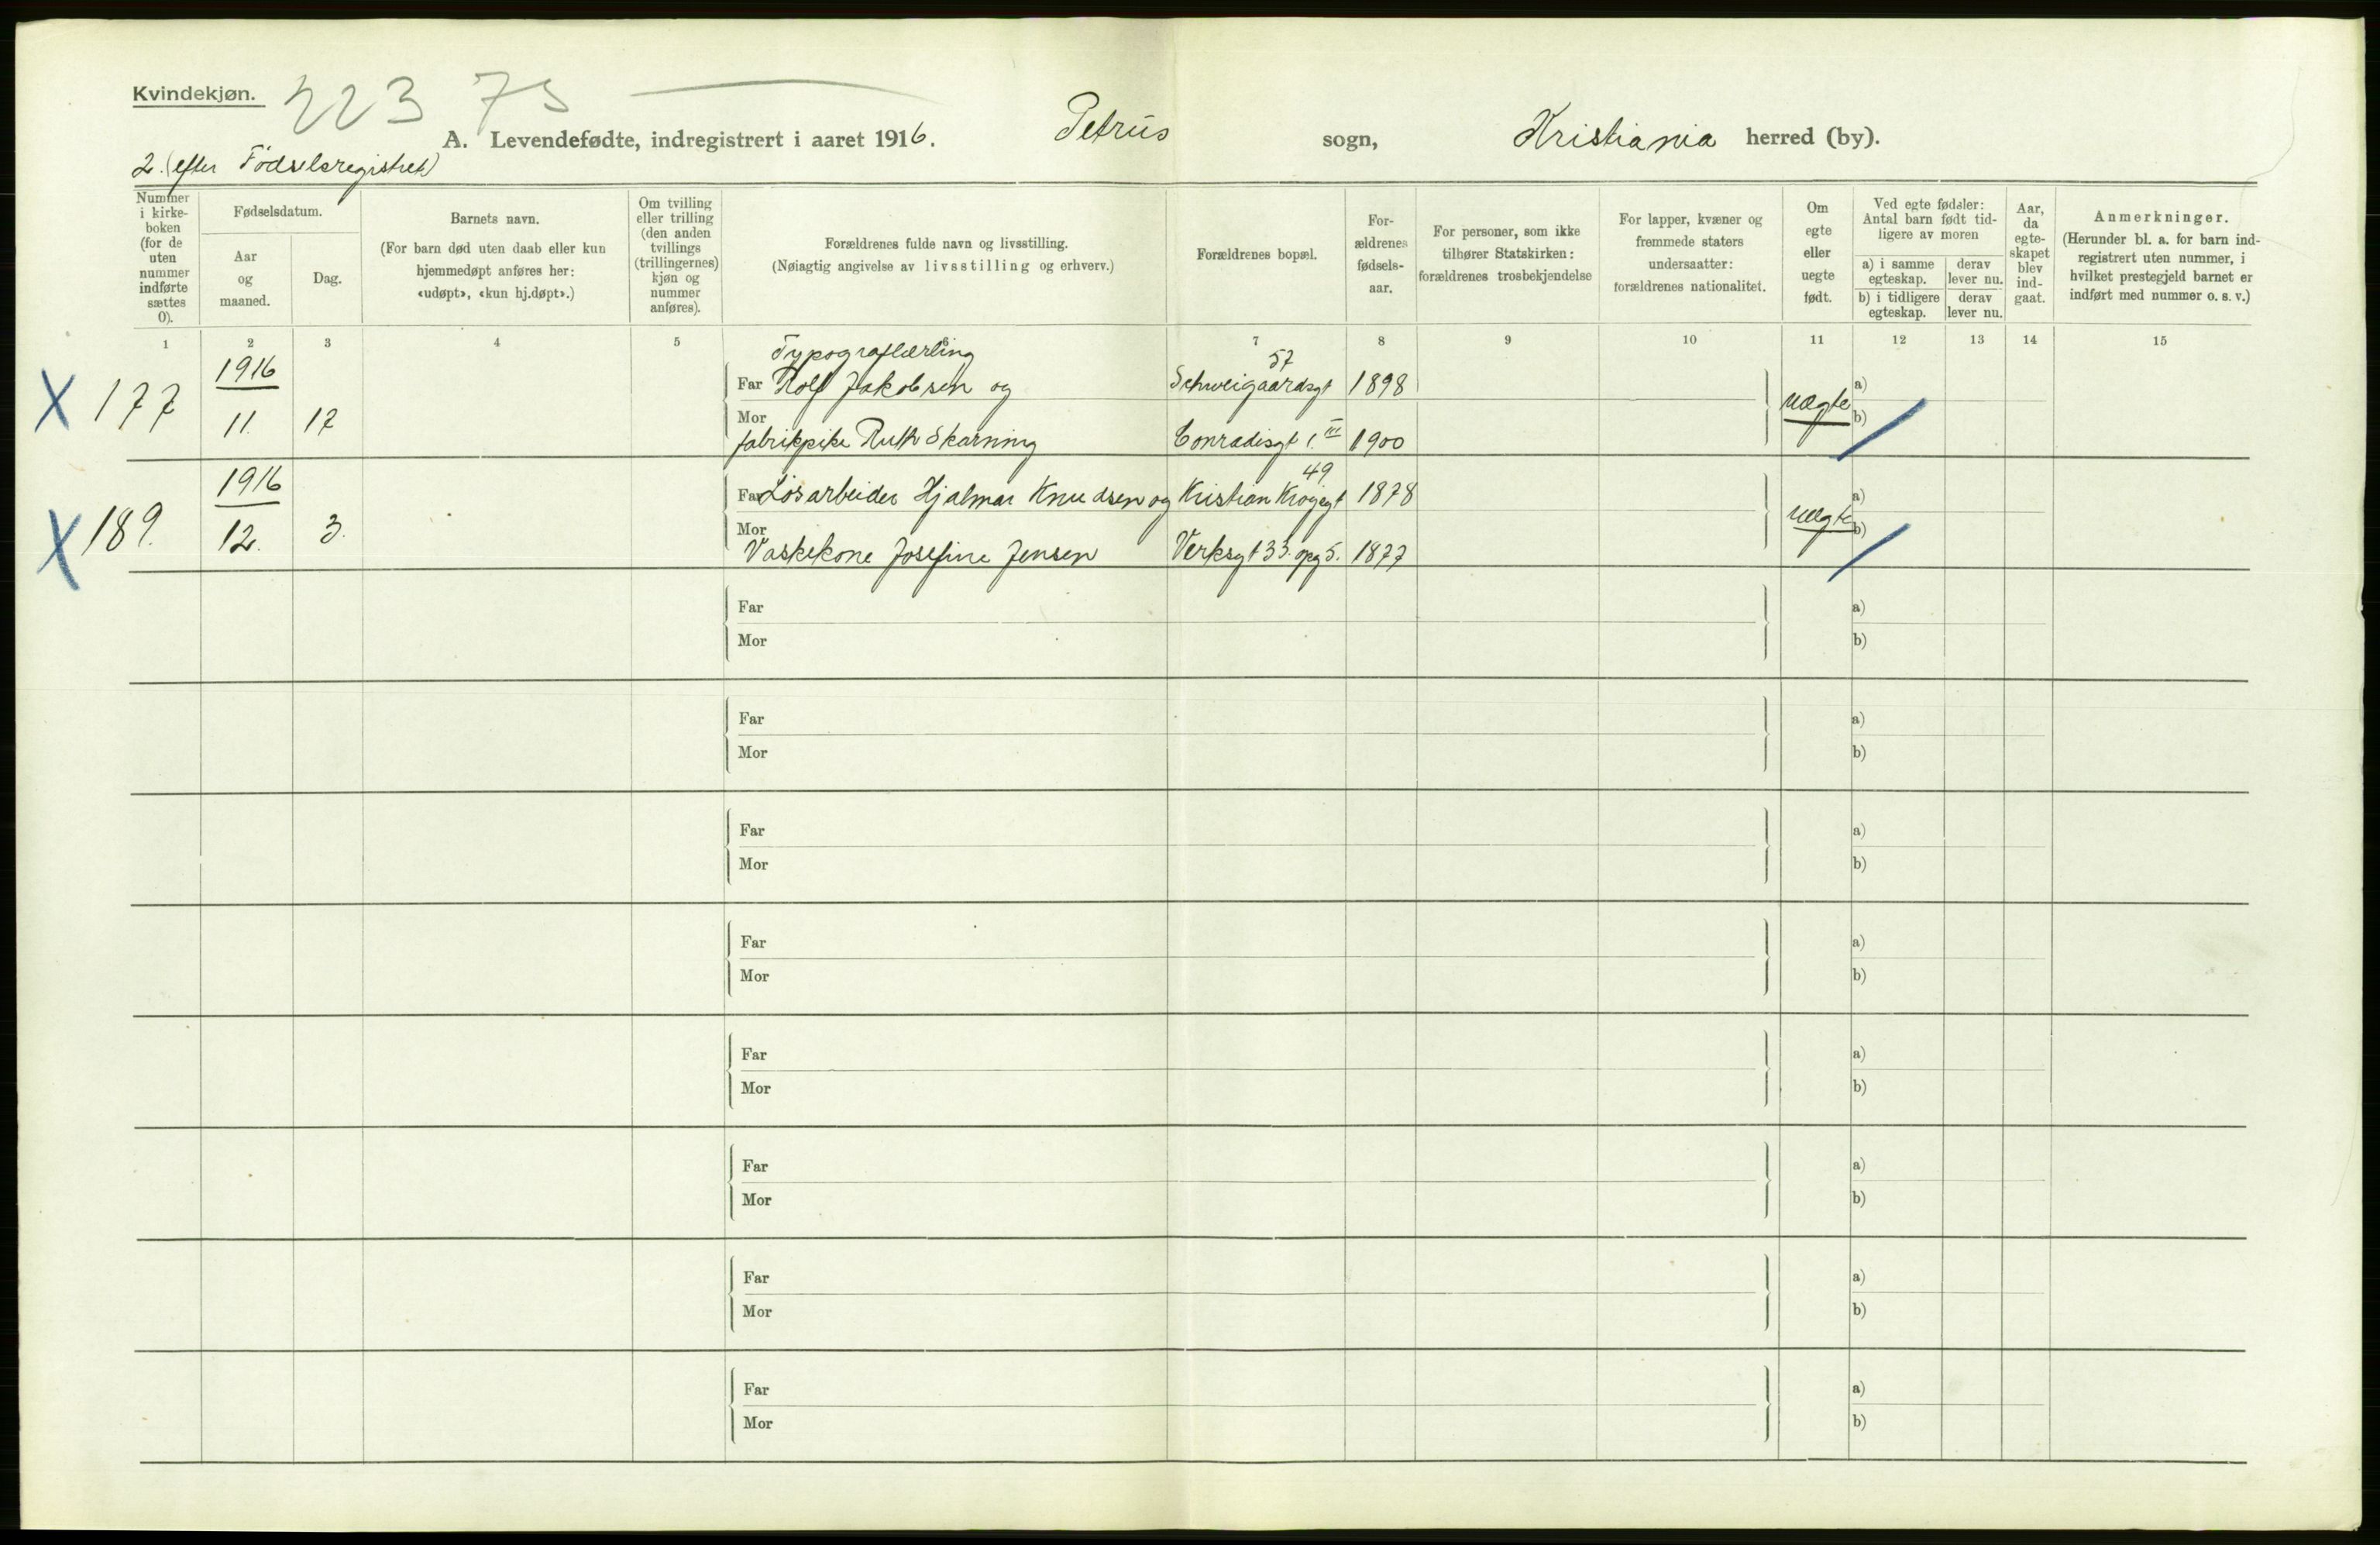 Kvindekjøn.
223 75
A. Levendefødte, indregistrert i aaret 1916. Petrus sogn, Kristiania herred (by).
2. (efter Födselsregistret)
Nummer i kirkeboken (for de uten nummer indførte sættes 0).
Fødselsdatum.
Aar og maaned.
Dag.
Barnets navn.
(For barn død uten daab eller kun hjemmedøpt anføres her: «udøpt», «kun hj.døpt».)
Om tvilling eller trilling (den anden tvillings (trillingernes) kjøn og nummer anføres).
Forældrenes fulde navn og livsstilling.
(Nøiagtig angivelse av livsstilling og erhverv.)
Forældrenes bopæl.
Forældrenes fødselsaar.
For personer, som ikke tilhører Statskirken: forældrenes trosbekjendelse
For lapper, kvæner og fremmede staters undersaatter: forældrenes nationalitet.
Om egte eller uegte født.
Ved egte fødsler: Antal barn født tidligere av moren
a) i samme egteskap. derav lever nu.
b) i tidligere egteskap. derav lever nu.
Aar, da egteskapet blev indgaat.
Anmerkninger.
(Herunder bl. a. for barn indregistrert uten nummer, i hvilket prestegjeld barnet er indført med nummer o. s. v.)
1 2 3 4 5 6 7 8 9 10 11 12 13 14 15
Typograflærling 57
X 177 1916 Far Rolf Jakobsen og Schweigaardsgt 1898 uægte a)
11. 17 Mor fabrikpike Ruth Skarning Conradisgt 1. III 1900 b)
49
X 189. 1916 Far Løsarbeider Hjalmar Knudsen og Kristian Kroggt 1878 uægte a)
12. 3. Mor Vaskekone Josefine Jensen Verksgt 33. opg 5. 1877 b)
Far a)
Mor b)
Far a)
Mor b)
Far a)
Mor b)
Far a)
Mor b)
Far a)
Mor b)
Far a)
Mor b)
Far a)
Mor b)
Far a)
Mor b)